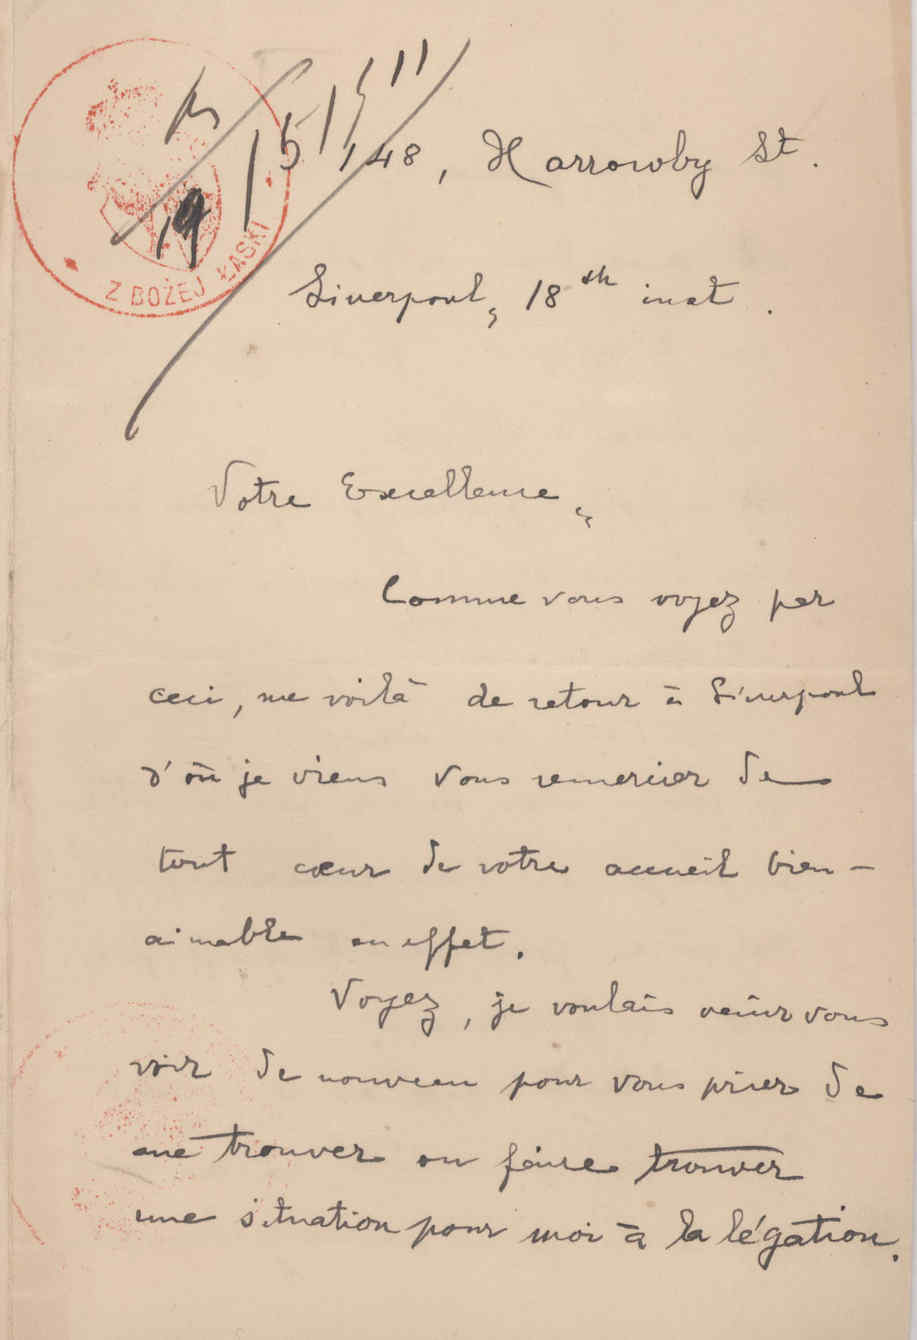 Z BOŻEJ ŁASKI
19
48, Harrowby St.
Liverpool, 18th inst.
Votre Excellence,
Comme vous voyez par
ceci, me voilà de retour à Liverpool
d'où je viens vous remercier de
tout cœur de votre accueil bien-
aimable en effet.
Voyez, je voulais venir vous
voir de nouveau pour vous prier de
me trouver ou faire trouver
une situation pour moi à la légation.